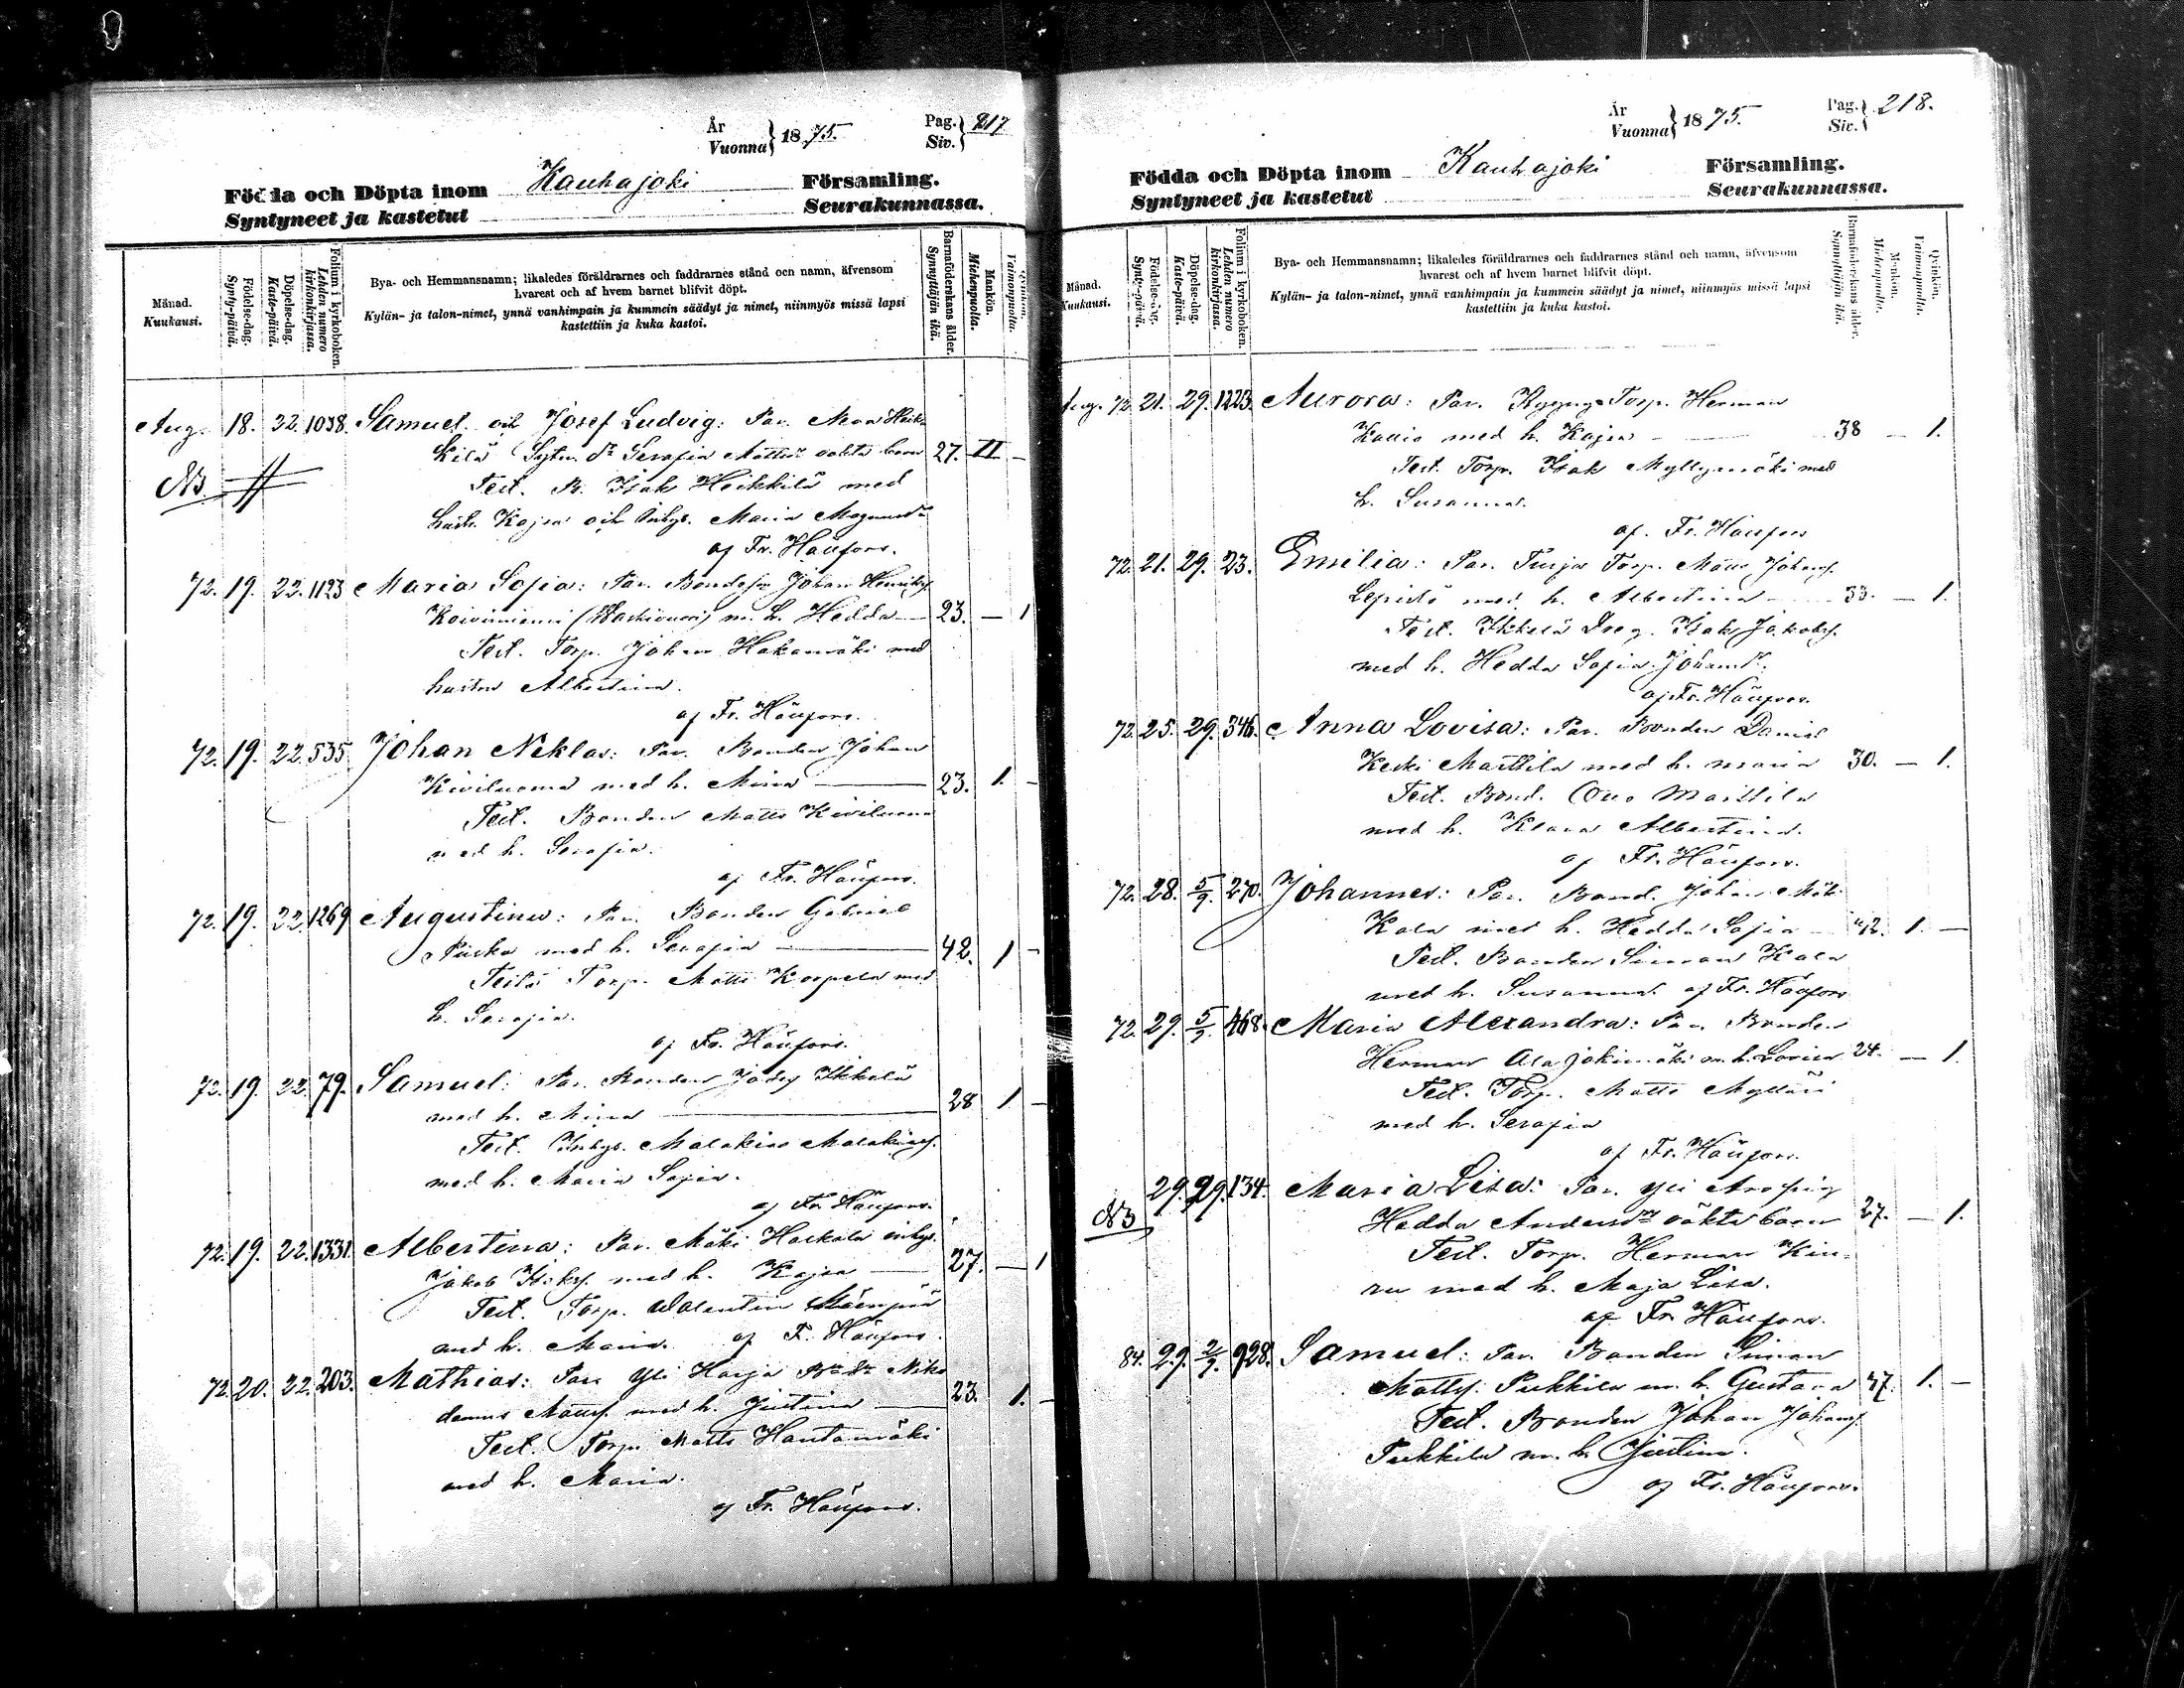 År
Vuonna } 1875.
Pag.
Siv. } 217
Födda och Döpta inom Kauhajoki Församling.
Syntyneet ja kastetut Seurakunnassa.
Månad.
Kuukausi.
Födelse-dag.
Synty-päivä.
Döpelse-dag.
Kaste-päivä.
Folium i kyrkoboken.
Lehden numero kirkonkirjassa.
Bya- och Hemmansnamn; likaledes föräldrarnes och faddrarnes stånd och namn, äfvensom
hvarest och af hvem barnet blifvit döpt.
Kylän- ja talon-nimet, ynnä vanhimpain ja kummein säädyt ja nimet, niinmyös missä lapsi
kastettiin ja kuka kastoi.
Barnaföderskans ålder.
Synnyttäjän ikä.
Mankön.
Miehenpuolia.
Qvinkön.
Vaimonpuolia.
Aug. 18. 22. 1038. Samuel och Josef Ludvig: Par. Heik-
kilä Serafia oäkta barn 27. II —
NB Test. B. Isak Heikkilä med
hustr. Kajsa och Inhys. Maria
af Fr. Häufors.
72. 19. 22. 1123 Maria Sofia: Par. Johan
Koivuniemi m. h. Hedda — 23. — 1
Test. Torp. Johan Hakamäki med
hustru Albertina.
af Fr. Häufors.
72. 19. 22. 535 Johan Niklas: Par. Bonden Johan
Kiviluoma med h. Mina — 23. 1. —
Test. Bonden Matts Kiviluoma
med h. Serafia.
af Fr. Häufors.
72. 19. 22. 1269 Augustinus: Par. Bonden Gabriel
med h. Serafia — 42. 1 —
Test. Torp. Matts Korpela med
h. Serafia.
af Fr. Häufors.
72. 19. 22. 79. Samuel: Par. Bonden Ikkelä
med h. Mina — 28 1. —
Test. Inhys. Malakias Malakiasf.
med h. Maria Sofia.
af Fr. Häufors.
72. 19. 22. 1331. Albertina: Par. Mäki inhys.
Jakob med h. Kajsa — 27. — 1
Test. Torp. Valentin Mäenpää
med h. Maria. af F. Häufors.
72. 20. 22. 203. Mathias: Par. Yli Harja Niko
demus Mattsf. med h. Justina — 23. 1. —
Test. Torp. Matts Hautamäki
med h. Maria.
af Fr. Häufors.
År
Vuonna } 1875.
Pag.
Siv. } 218.
Födda och Döpta inom Kauhajoki Församling.
Syntyneet ja kastetut Seurakunnassa.
Månad.
Kuukausi.
Födelse-dag.
Synty-päivä.
Döpelse-dag.
Kaste-päivä.
Folium i kyrkoboken.
Lehden numero kirkonkirjassa.
Bya- och Hemmansnamn; likaledes föräldrarnes och faddrarnes stånd och namn, äfvensom
hvarest och af hvem barnet blifvit döpt.
Kylän- ja talon-nimet, ynnä vanhimpain ja kummein säädyt ja nimet, niinmyös missä lapsi
kastettiin ja kuka kastoi.
Barnaföderskans ålder.
Synnyttäjän ikä.
Mankön.
Miehenpuolia.
Qvinkön.
Vaimonpuolia.
Aug. 72. 21. 29. 1223. Aurora: Par. Torp. Herman
Kallio med h. Kajsa — 38 — 1.
Test. Torp. Isak Myllymäki med
h. Susanna.
af Fr. Häufors
72. 21. 29. 23. Emilia: Par. Turja Torp. Matts Johansf.
Lepistö med h. Albertina 33. — 1.
Test. Ikkelä Dreg. Isak Jakobsf.
med h. Hedda Sofia
af Fr. Häufors.
72. 25. 29. 346. Anna Lovisa: Par. Bonden Daniel
Keski Marttila med h. Maria 30. — 1.
Test. Bond. Marttila
med h. Klara Albertina.
af Fr. Häufors.
72. 28. 5/9. 270. Johannes: Par. Bond. Johan
med h. Hedda Sofia 42. 1. —
Test. Bonden Simon
med h. Susanna. af Fr. Häufors
72. 29. 5/9. 468. Maria Alexandra: Par. Bonden
Herman Ala Jokimäki m. h. Lovisa 24. — 1.
Test. Torp. Matts Mylläri
med h. Serafia
af Fr. Häufors.
NB 29. 29. 134. Maria Lisa: Par. Yli
Hedda oäkta barn 27. — 1.
Test. Torp. Herman Kin-
nu med h. Maja Lisa.
af Fr. Häufors.
84. 29. 2/9. 928. Samuel: Par. Bonden Simon
Mattsf. Pukkila m. h. Gustava 37. 1. —
Test. Bonden Johan Johansf.
Pukkila m. h. Justina.
af Fr. Häufors.